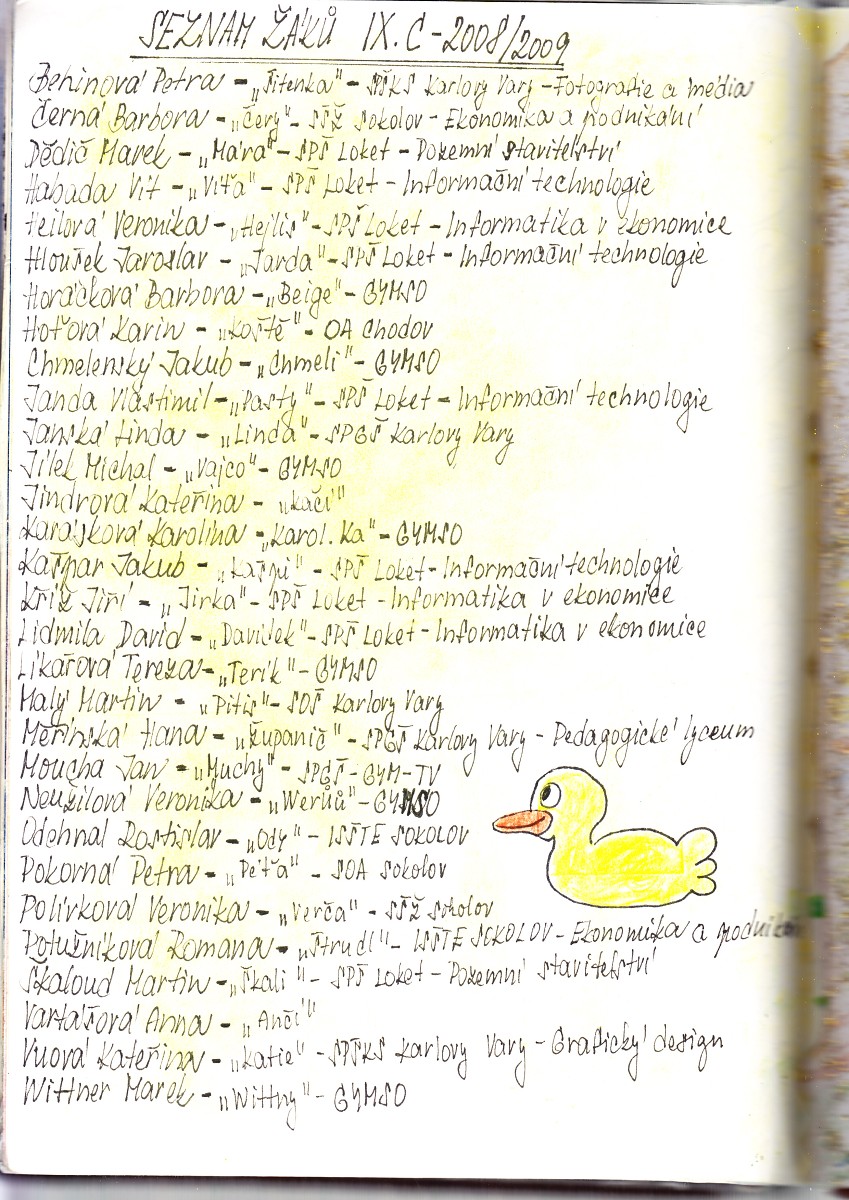 SEZNAM ŽÁKŮ IX.C-2008/2009
Behinová Petra - „Pitenka" - SPŠKS Karlovy Vary - Fotografie a média
Černá Barbora - „Cery" - SŠŽ Sokolov - Ekonomika a podnikání
Dědič Marek - „Mára" - SPŠ Loket - Pozemní stavitelství
Habada Vít - „Víťa" - SPŠ Loket - Informační technologie
Heilová Veronika - „Hejlis" - SPŠ Loket - Informatika v ekonomice
Hloušek Jaroslav - „Jarda" - SPŠ Loket - Informační technologie
Horáčková Barbora - „Beige" - GYMSO
Hoťová Karin - „Koště" - OA Chodov
Chmelenský Jakub - „Chmeli" - GYMSO
Janda Vlastimil - „Pasty" - SPŠ Loket - Informační technologie
Janská Linda - „Linda" - SPGŠ Karlovy Vary
Jílek Michal - „Vajco" - GYMSO
Jindrová Kateřina - „Kačí"
Karásková Karolína - „Karol.Ka" - GYMSO
Kašpar Jakub - „Kašpi" - SPŠ Loket - Informační technologie
Kříž Jiří - „Jirka" - SPŠ Loket - Informatika v ekonomice
Lidmila David - „Davídek" - SPŠ Loket - Informatika v ekonomice
Likařová Tereza - „Terik" - GYMSO
Malý Martin - „Pitis" - SOŠ Karlovy Vary
Měřínská Hana - „Županič" - SPGŠ Karlovy Vary - Pedagogické lyceum
Moucha Jan - „Muchy" - SPGŠ - GYM-TV
Neužilová Veronika - „Werůů" - GYMSO
Odehnal Rostislav - „Ody" - ISŠTE SOKOLOV
Pokorná Petra - „Péťa" - SOA Sokolov
Polívková Veronika - „Verča" - SŠŽ Sokolov
Potužníková Romana - „Štrudl" - ISŠTE SOKOLOV - Ekonomika a
Škaloud Martin - „Škali" - SPŠ Loket - Pozemní stavitelství
Vartášová Anna - „Ančí"
Vuová Kateřina - „Katie" - SPŠKS Karlovy Vary - Grafický design
Wittner Marek - „Wittny" - GYMSO